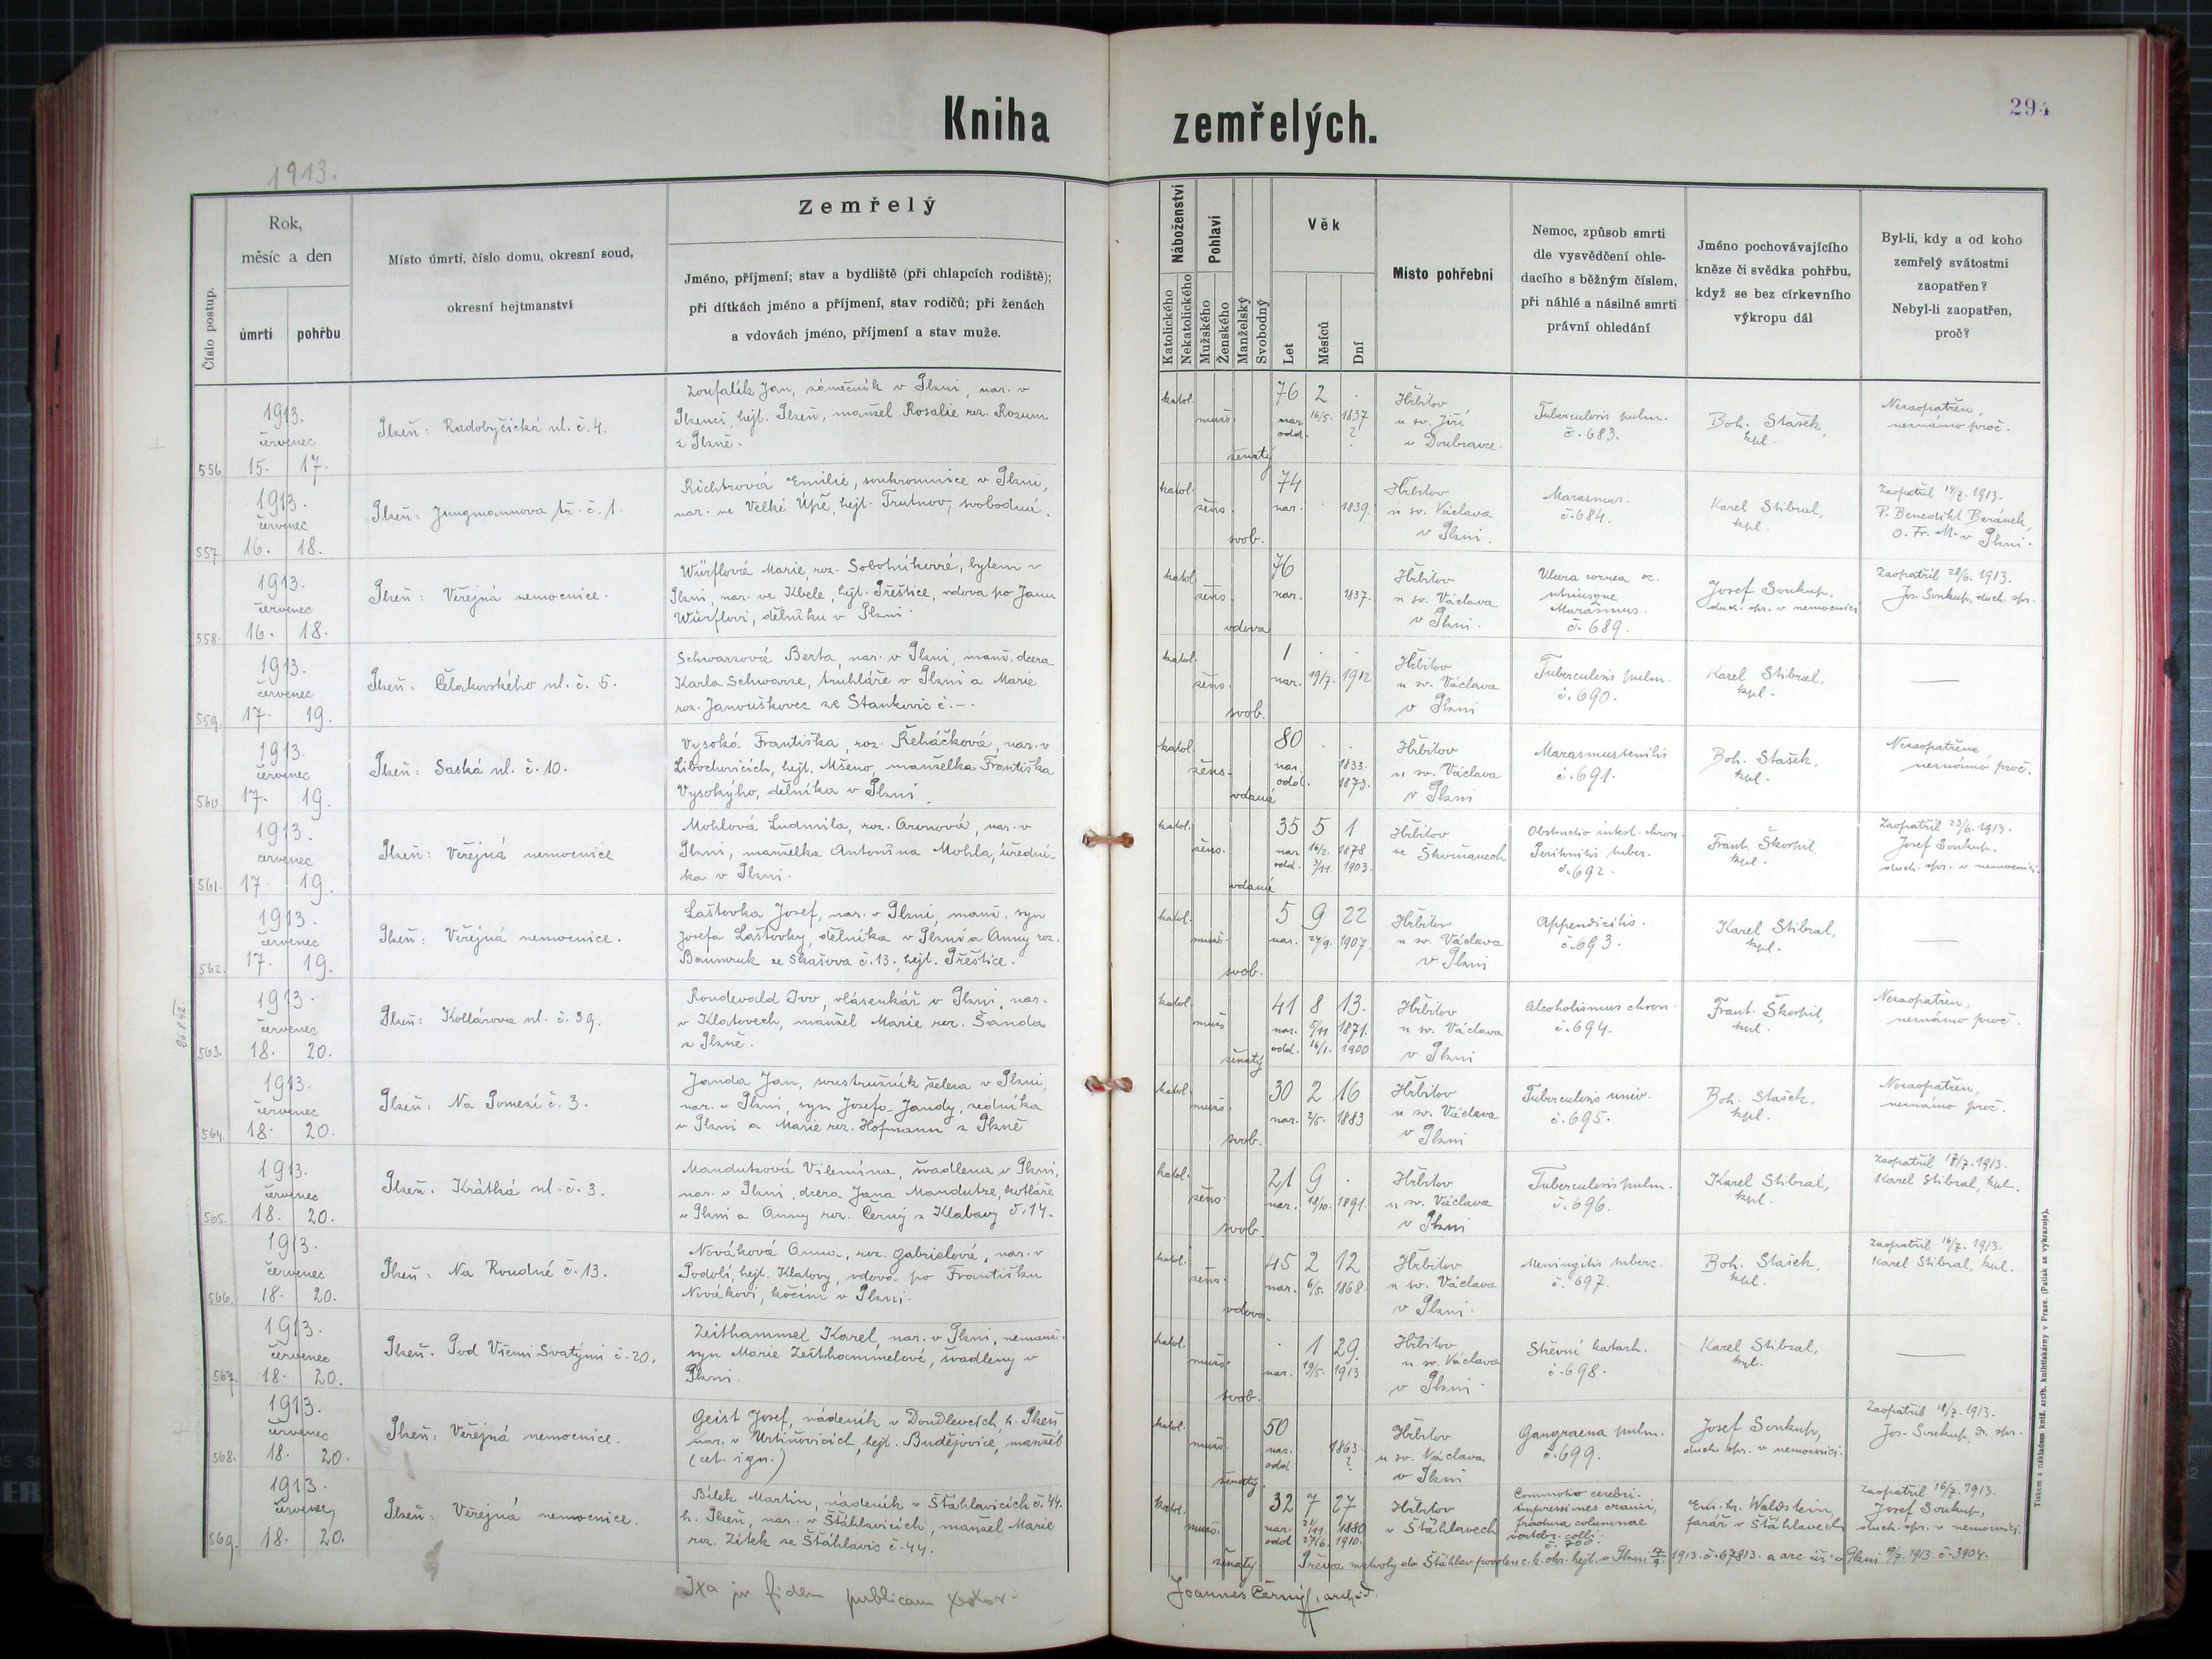 Kniha zemřelých.
294
1913.
Číslo postup.
Rok,
měsíc a den
úmrtí
pohřbu
Místo úmrtí, číslo domu, okresní soud,
okresní hejtmanství
Zemřelý
Jméno, příjmení; stav a bydliště (při chlapcích rodiště);
při dítkách jméno a příjmení, stav rodičů; při ženách
a vdovách jméno, příjmení a stav muže.
Náboženství
Katolického
Nekatolického
Pohlaví
Mužského
Ženského
Manželský
Svobodný
Věk
Let
Měsíců
Dní
Místo pohřební
Nemoc, způsob smrti
dle vysvědčení ohle-
dacího s běžným číslem,
při náhlé a násilné smrti
právní ohledání
Jméno pochovávajícího
kněze či svědka pohřbu,
když se bez církevního
výkropu dál
Byl-li, kdy a od koho
zemřelý svátostmi
zaopatřen?
Nebyl-li zaopatřen,
proč?
556.
1913.
červenec
15. 17.
Plzeň: Radobyčická ul. č. 4.
Zoufalík Jan, zámečník v Plzni, nar. v
Plzenci, hejt. Plzeň, manžel Rosalie roz. Rozum
z Plzně.
katol.
mužs.
ženatý
76 2 .
nar. 16/5. 1837
odd. ?
Hřbitov
u sv. Jiří
v Doubravce.
Tuberculosis pulm.
č. 683.
Boh. Stašek,
kpl.
Nezaopatřen,
neznámo proč.
557.
1913.
červenec
16. 18.
Plzeň: Jungmannova tř. č. 1.
Richtrová Emilie, soukromnice v Plzni,
nar. ve Velké Úpě, hejt. Trutnov, svobodná.
katol.
žens.
svob.
74
nar. . 1839.
Hřbitov
u sv. Václava
v Plzni.
Marasmus.
č. 684.
Karel Stibral,
kpl.
Zaopatřil 14/7. 1913.
P. Benedikt Beránek,
O. Fr. M. v Plzni.
558.
1913.
červenec
16. 18.
Plzeň: Veřejná nemocnice.
Würflová Marie, roz. Sobotníková, bytem v
Plzni, nar. ve Kbele, hejt. Přeštice, vdova po Janu
Würflovi, dělníku v Plzni.
katol.
žens.
vdova
76
nar. 1837.
Hřbitov
u sv. Václava
v Plzni.
Ulcera cornea oc.
utriusque
Marasmus.
č. 689.
Josef Soukup,
duch. spr. v nemocnici
Zaopatřil 28/6. 1913.
Jos. Soukup, duch. spr.
559.
1913.
červenec
17. 19.
Plzeň: Čelakovského ul. č. 5.
Schwarzová Berta, nar. v Plzni, manž. dcera
Karla Schwarze, truhláře v Plzni a Marie
roz. Janouškovec ze Stankovic č. –.
katol.
žens.
svob.
1 . .
nar. 19/7. 1912
Hřbitov
u sv. Václava
v Plzni
Tuberculosis pulm.
č. 690.
Karel Stibral,
kpl.
—
560.
1913.
červenec
17. 19.
Plzeň: Saská ul. č. 10.
Vysoká Františka, roz. Řeháčková, nar. v
Libochovicích, hejt. Mšeno, manželka Františka
Vysokýho, dělníka v Plzni.
katol.
žens.
vdaná
80 . .
nar. 1833.
odd. 1873.
Hřbitov
u sv. Václava
v Plzni
Marasmus senilis
č. 691.
Boh. Stašek,
kpl.
Nezaopatřena,
neznámo proč.
561.
1913.
červenec
17. 19.
Plzeň: Veřejná nemocnice
Mohlová Ludmila, roz. Aronová, nar. v
Plzni, manželka Antonína Mohla, úřední-
ka v Plzni.
katol.
žens.
vdaná
35 5 1
nar. 16/2. 1878
odd. 3/11. 1903.
Hřbitov
ve Skvrňanech
Obstructio intest. chron.
Peritonitis tuber.
č. 692.
Frant. Škorpil
kpl.
Zaopatřil 23/6. 1913.
Josef Soukup,
duch. spr. v nemocnici.
562.
1913.
červenec
17. 19.
Plzeň: Veřejná nemocnice.
Laštovka Josef, nar. v Plzni, manž. syn
Josefa Laštovky, dělníka v Plzni a Anny roz.
Baumruk ze Skašova č. 13., hejt. Přeštice.
katol.
mužs.
svob.
5 9 22
nar. 24/9. 1907.
Hřbitov
u sv. Václava
v Plzni
Appendicitis.
č. 693.
Karel Stibral,
kpl.
—
563.
1913.
červenec
18. 20.
Plzeň: Kollárova ul. č. 39.
Roudevald Ivo, vlásenkář v Plzni, nar.
v Klatovech, manžel Marie roz. Šanda
z Plzně.
katol.
mužs
ženatý
41 8 13.
nar. 5/11 1871.
odd. 16/1. 1900
Hřbitov
u sv. Václava
v Plzni
Alcoholismus chron.
č. 694.
Frant. Škorpil,
kpl.
Nezaopatřen,
neznámo proč.
564.
1913.
červenec
18. 20.
Plzeň: Na Pomezí č. 3.
Janda Jan, soustružník železa v Plzni,
nar. v Plzni, syn Josefa Jandy, zedníka
v Plzni a Marie roz. Hofmann z Plzně
katol.
mužs.
svob.
30 2 16
nar. 2/5. 1883
Hřbitov
u sv. Václava
v Plzni
Tuberculosis univ.
č. 695.
Boh. Stašek,
kpl.
Nezaopatřen,
neznámo proč.
565.
1913.
červenec
18. 20.
Plzeň. Krátká ul. č. 3.
Mandutzová Vilemína, švadlena v Plzni,
nar. v Plzni, dcera Jana Mandutze, kotláře
v Plzni a Anny roz. Černý z Klabavy č. 14.
katol.
žens.
svob.
21 9 .
nar. 18/10. 1891.
Hřbitov
u sv. Václava
v Plzni
Tuberculosis pulm.
č. 696.
Karel Stibral,
kpl.
Zaopatřil 17/7. 1913.
Karel Stibral, kpl.
566.
1913.
červenec
18. 20.
Plzeň. Na Roudné č. 13.
Nováková Anna, roz. Gabrielová, nar. v
Podolí, hejt. Klatovy, vdova po Františku
Novákovi, kočím v Plzni.
katol.
žens.
vdova.
45 2 12
nar. 6/5. 1868.
Hřbitov
u sv. Václava
v Plzni.
Meningitis tuberc.
č. 697.
Boh. Stašek,
kpl.
Zaopatřil 16/7. 1913.
Karel Stibral, kpl.
567.
1913.
červenec
18. 20.
Plzeň. Pod Všemi Svatými č. 20.
Zeithammel Karel, nar. v Plzni, nemanž.
syn Marie Zeithammelové, švadleny v
Plzni.
katol.
mužs.
svob.
. 1 29
nar. 19/5. 1913
Hřbitov
u sv. Václava
v Plzni.
Střevní katarh.
č. 698.
Karel Stibral,
kpl.
—
568.
1913.
červenec
18. 20.
Plzeň. Veřejná nemocnice.
Geist Josef, nádeník v Doudlevcích, h. Plzeň
nar. v hejt. Budějovice, manžel
(cet. ign.)
katol.
mužs.
ženatý.
50
nar. 1863.
odd. ?
Hřbitov
u sv. Václava
v Plzni
Gangraena pulm.
č. 699.
Josef Soukup,
duch. spr. v nemocnici.
Zaopatřil 18/7. 1913.
Jos. Soukup, d. spr.
569.
1913.
červenec
18. 20.
Plzeň: Veřejná nemocnice.
Bílek Martin, nádeník v Štáhlavicích č. 44.
h. Plzeň, nar. v Štáhlavicích, manžel Marie
roz. Zítek ze Štáhlavic č. 44.
katol.
mužs.
ženatý
32 7 27
nar. 21/11. 1880.
odd. 27/6. 1910.
Hřbitov
v Štáhlavech
Commotio cerebri.
impressiones cranii,
fractura columnae
vertebr. colli.
č. 700.
Em. hr. Waldstein,
farář v Štáhlavech
Zaopatřil 16/7. 1913.
Josef Soukup,
duch. spr. v nemocnici.
Převoz mrtvoly do Štáhlav povolen c. k. okr. hejt. v Plzni 1913. č. 67813. a arc. úř. v Plzni 19/7. 1913. č. 3904.
Ixa in fidem publicam
Joannes Černý,
Tiskem a nákladem kníž. arcib. knihtiskárny v Praze. (Patisk se vyhrazuje).